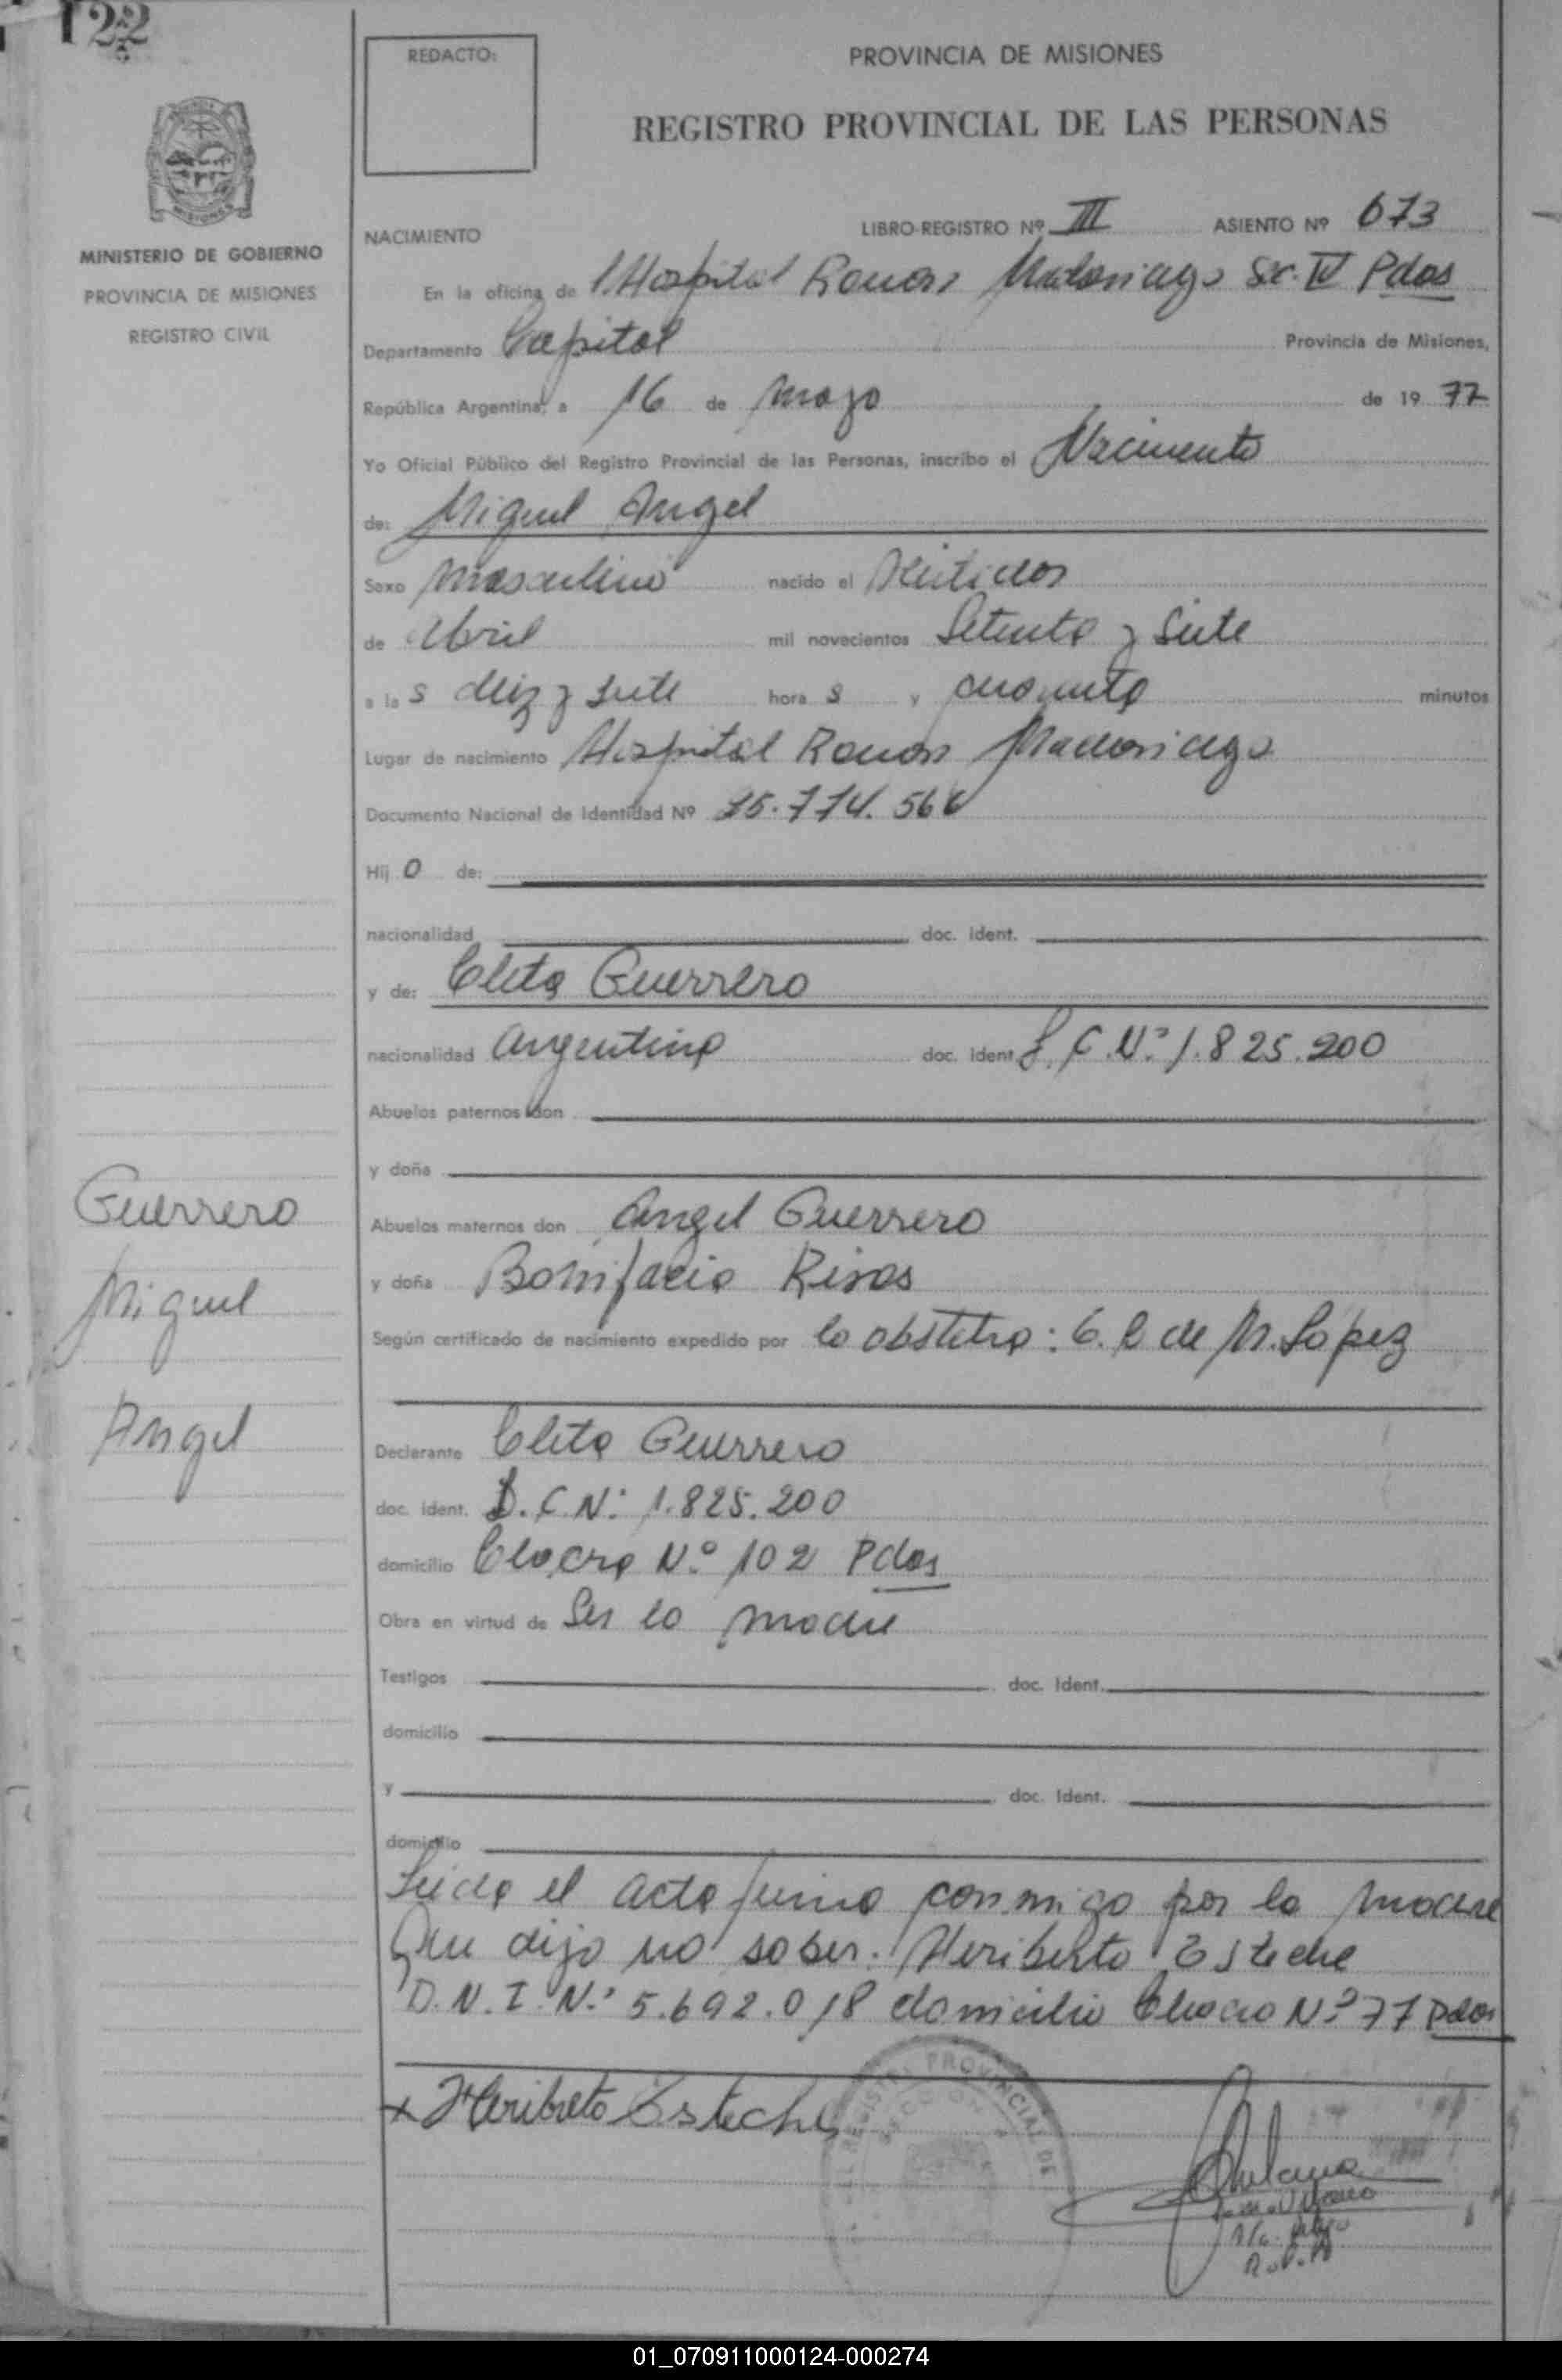 122
REDACTO:
PROVINCIA DE MISIONES
REGISTRO PROVINCIAL DE LAS PERSONAS
MINISTERIO DE GOBIERNO
PROVINCIA DE MISIONES
REGISTRO CIVIL
NACIMIENTO LIBRO-REGISTRO Nº III ASIENTO Nº 673
En la oficina de Hospital Ramon Madariaga Sec. IV Pdas
Departamento Capital Provincia de Misiones,
República Argentina, a 16 de mayo de 19 77
Yo Oficial Público del Registro Provincial de las Personas, inscribo el Nacimiento
de: Miguel Angel
Sexo masculino nacido el Veintidos
de Abril mil novecientos Setenta y Siete
a la s diez y siete hora s y cuarenta minutos
Lugar de nacimiento Hospital Ramon Madariaga
Documento Nacional de Identidad Nº 25.774.566
Hij o de:
nacionalidad doc. ident.
y de: Cleta Guerrero
nacionalidad argentina doc. ident L.C.Nº 1.825.200
Abuelos paternos don
y doña
Guerrero
Abuelos maternos don Angel Guerrero
y doña Bonifacia Rivas
Miguel
Según certificado de nacimiento expedido por la obstetra: C. de M. Lopez
Angel
Declarante Cleta Guerrero
doc. ident. L.C.Nº 1.825.200
domicilio Chacra Nº 102 Pdas
Obra en virtud de Ser la madre
Testigos doc. Ident.
domicilio
y doc. Ident.
domicilio
Leida el acta firma conmigo por la madre
Que dijo no saber. Heriberto Esteche
D.N.I.Nº 5.692.018 domicilio Chacra Nº 77 Pdas
x Heriberto Esteche
REGISTRO PROVINCIAL DE
SECCION
01_070911000124-000274